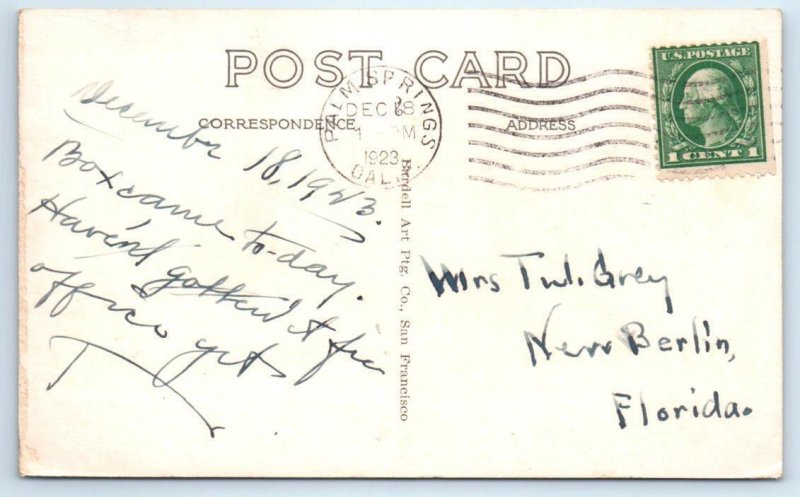 POST CARD
CORRESPONDENCE
ADDRESS
PALM SPRINGS
DEC 18
1 PM
1923
CAL.
U.S. POSTAGE
1 CENT 1
December 18, 1923.
Box came to-day.
Haven't gotten it fr
office yet
T
Bardell Art Ptg. Co., San Francisco
Mrs T.W. Grey
New Berlin,
Florida.